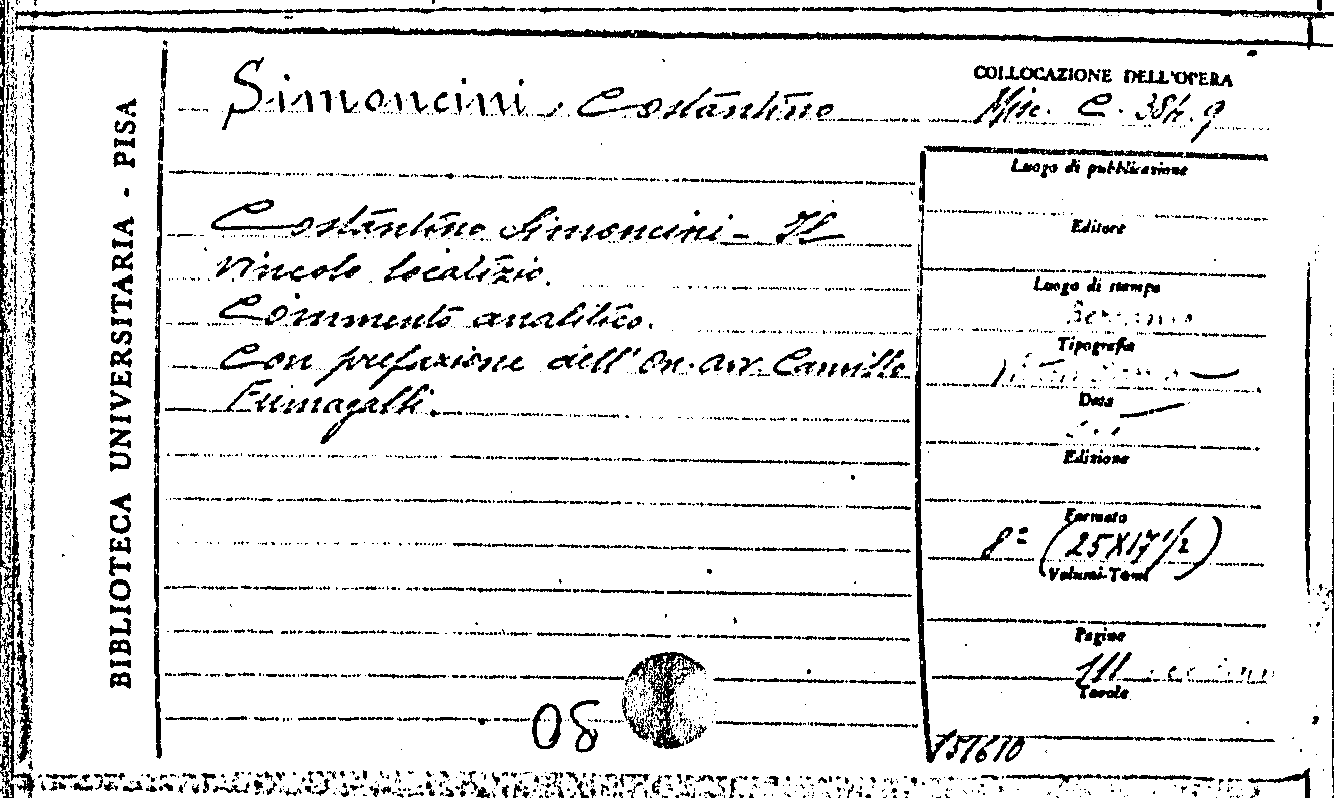 BIBLIOTECA UNIVERSITARIA - PISA
Simoncini, Costantino
Costantino Simoncini - Il
vincolo localizio.
Commento analitico.
Con prefazione dell' On. avv. Camillo
Fumagalli.
08
COLLOCAZIONE DELL'OPERA
Misc. C. 384. 9
Luogo di pubblicazione
Editore
Luogo di stampa
Tipografia
Data
Edizione
Formato
8º (25X17 1/2)
Volumi-Tomi
Pagine
Tavole
151610